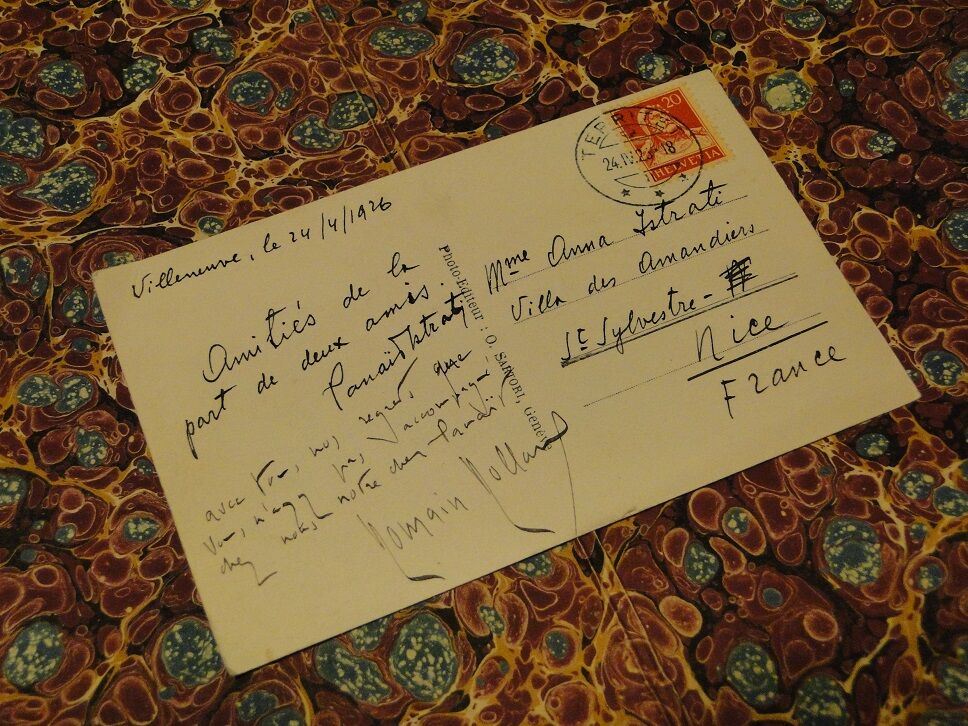 Villeneuve, le 24/4/1926
Amitiés de la
part de deux amis.
Panaït Istrati
avec tous nos regrets que
vous n'ayez pas accompagné
chez nous notre cher Panaït
Romain Rolland
Photo-Editeur : O. SARTORI, Genève
20
HELVETIA
24.IV.26 18
Mme Anna Istrati
Villa des Amandiers
St Sylvestre -
Nice
France